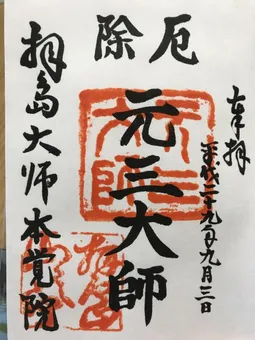 奉拝
平成二十九年九月三日
厄除
元三大師
拝島大師本覚院